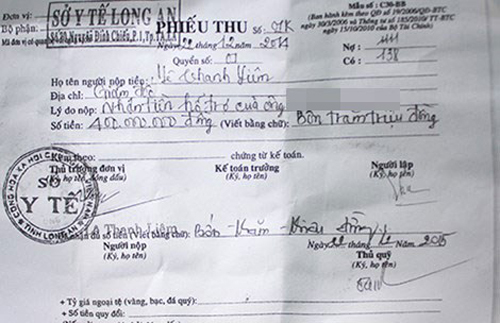 Đơn vị:
Bộ phận:
Mã đơn vị có quan
SỞ Y TẾ LONG AN
Số 70, Nguyễn Đình Chiểu, P.1, TP.TA, LA
PHIẾU THU Số: 01K
Mẫu số: C30-BB
(Ban hành kèm theo QĐ số 19/2006/QĐ-BTC
ngày 30/3/2006 và Thông tư số 185/2010/TT-BTC
ngày 15/10/2010 của Bộ Tài Chính)
Ngày 22 12 2014
Quyển số: 01
Nợ: 1111
Có: 138
Họ tên người nộp tiền: Lê Thanh Liêm
Địa chỉ: Giám đốc
Lý do nộp: Nhận tiền hỗ trợ của ông
Số tiền: 400.000.000 đồng (Viết bằng chữ): Bốn trăm triệu đồng
Kèm theo: chứng từ kế toán.
Thủ trưởng đơn vị
(Ký họ tên, đóng dấu)
Kế toán trưởng
(Ký, họ tên)
Người lập
(Ký, họ tên)
CỘNG HÒA XÃ HỘI CHỦ NGHĨA VIỆT NAM
SỞ
Y TẾ
TỈNH LONG AN
Lê Thanh Liêm
nhận đủ số tiền (Viết bằng chữ): Bốn trăm triệu đồng
Người nộp
(Ký, họ tên)
Ngày 22 12 2015
Thủ quỹ
(Ký, họ tên)
+ Tỷ giá ngoại tệ (vàng, bạc, đá quý):
+ Số tiền quy đổi: